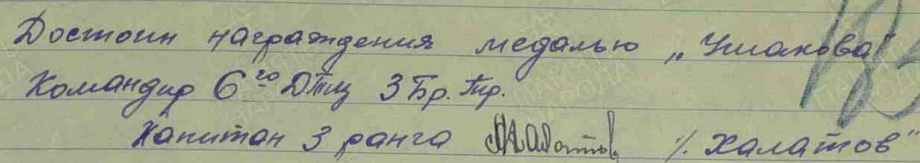 Достоин награждения медалью „Ушакова"
Командир 6го ДТщ 3 Бр. Тр.
Капитан 3 ранга Халатов /. Халатов"